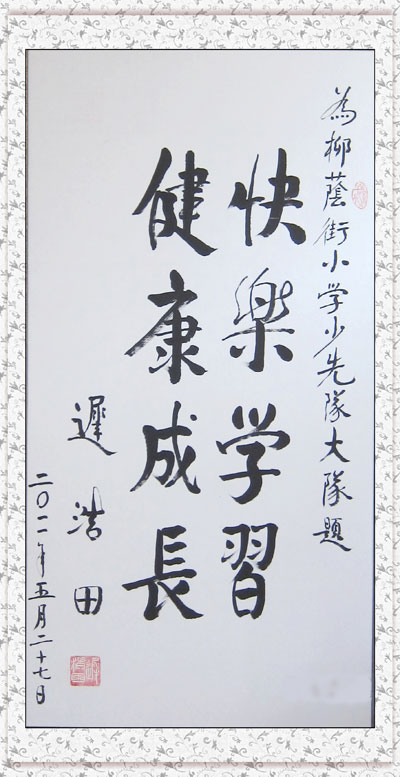 為柳蔭街小学少先隊大隊題
快樂学習
健康成長
遲浩田
二〇一一年五月二十七日